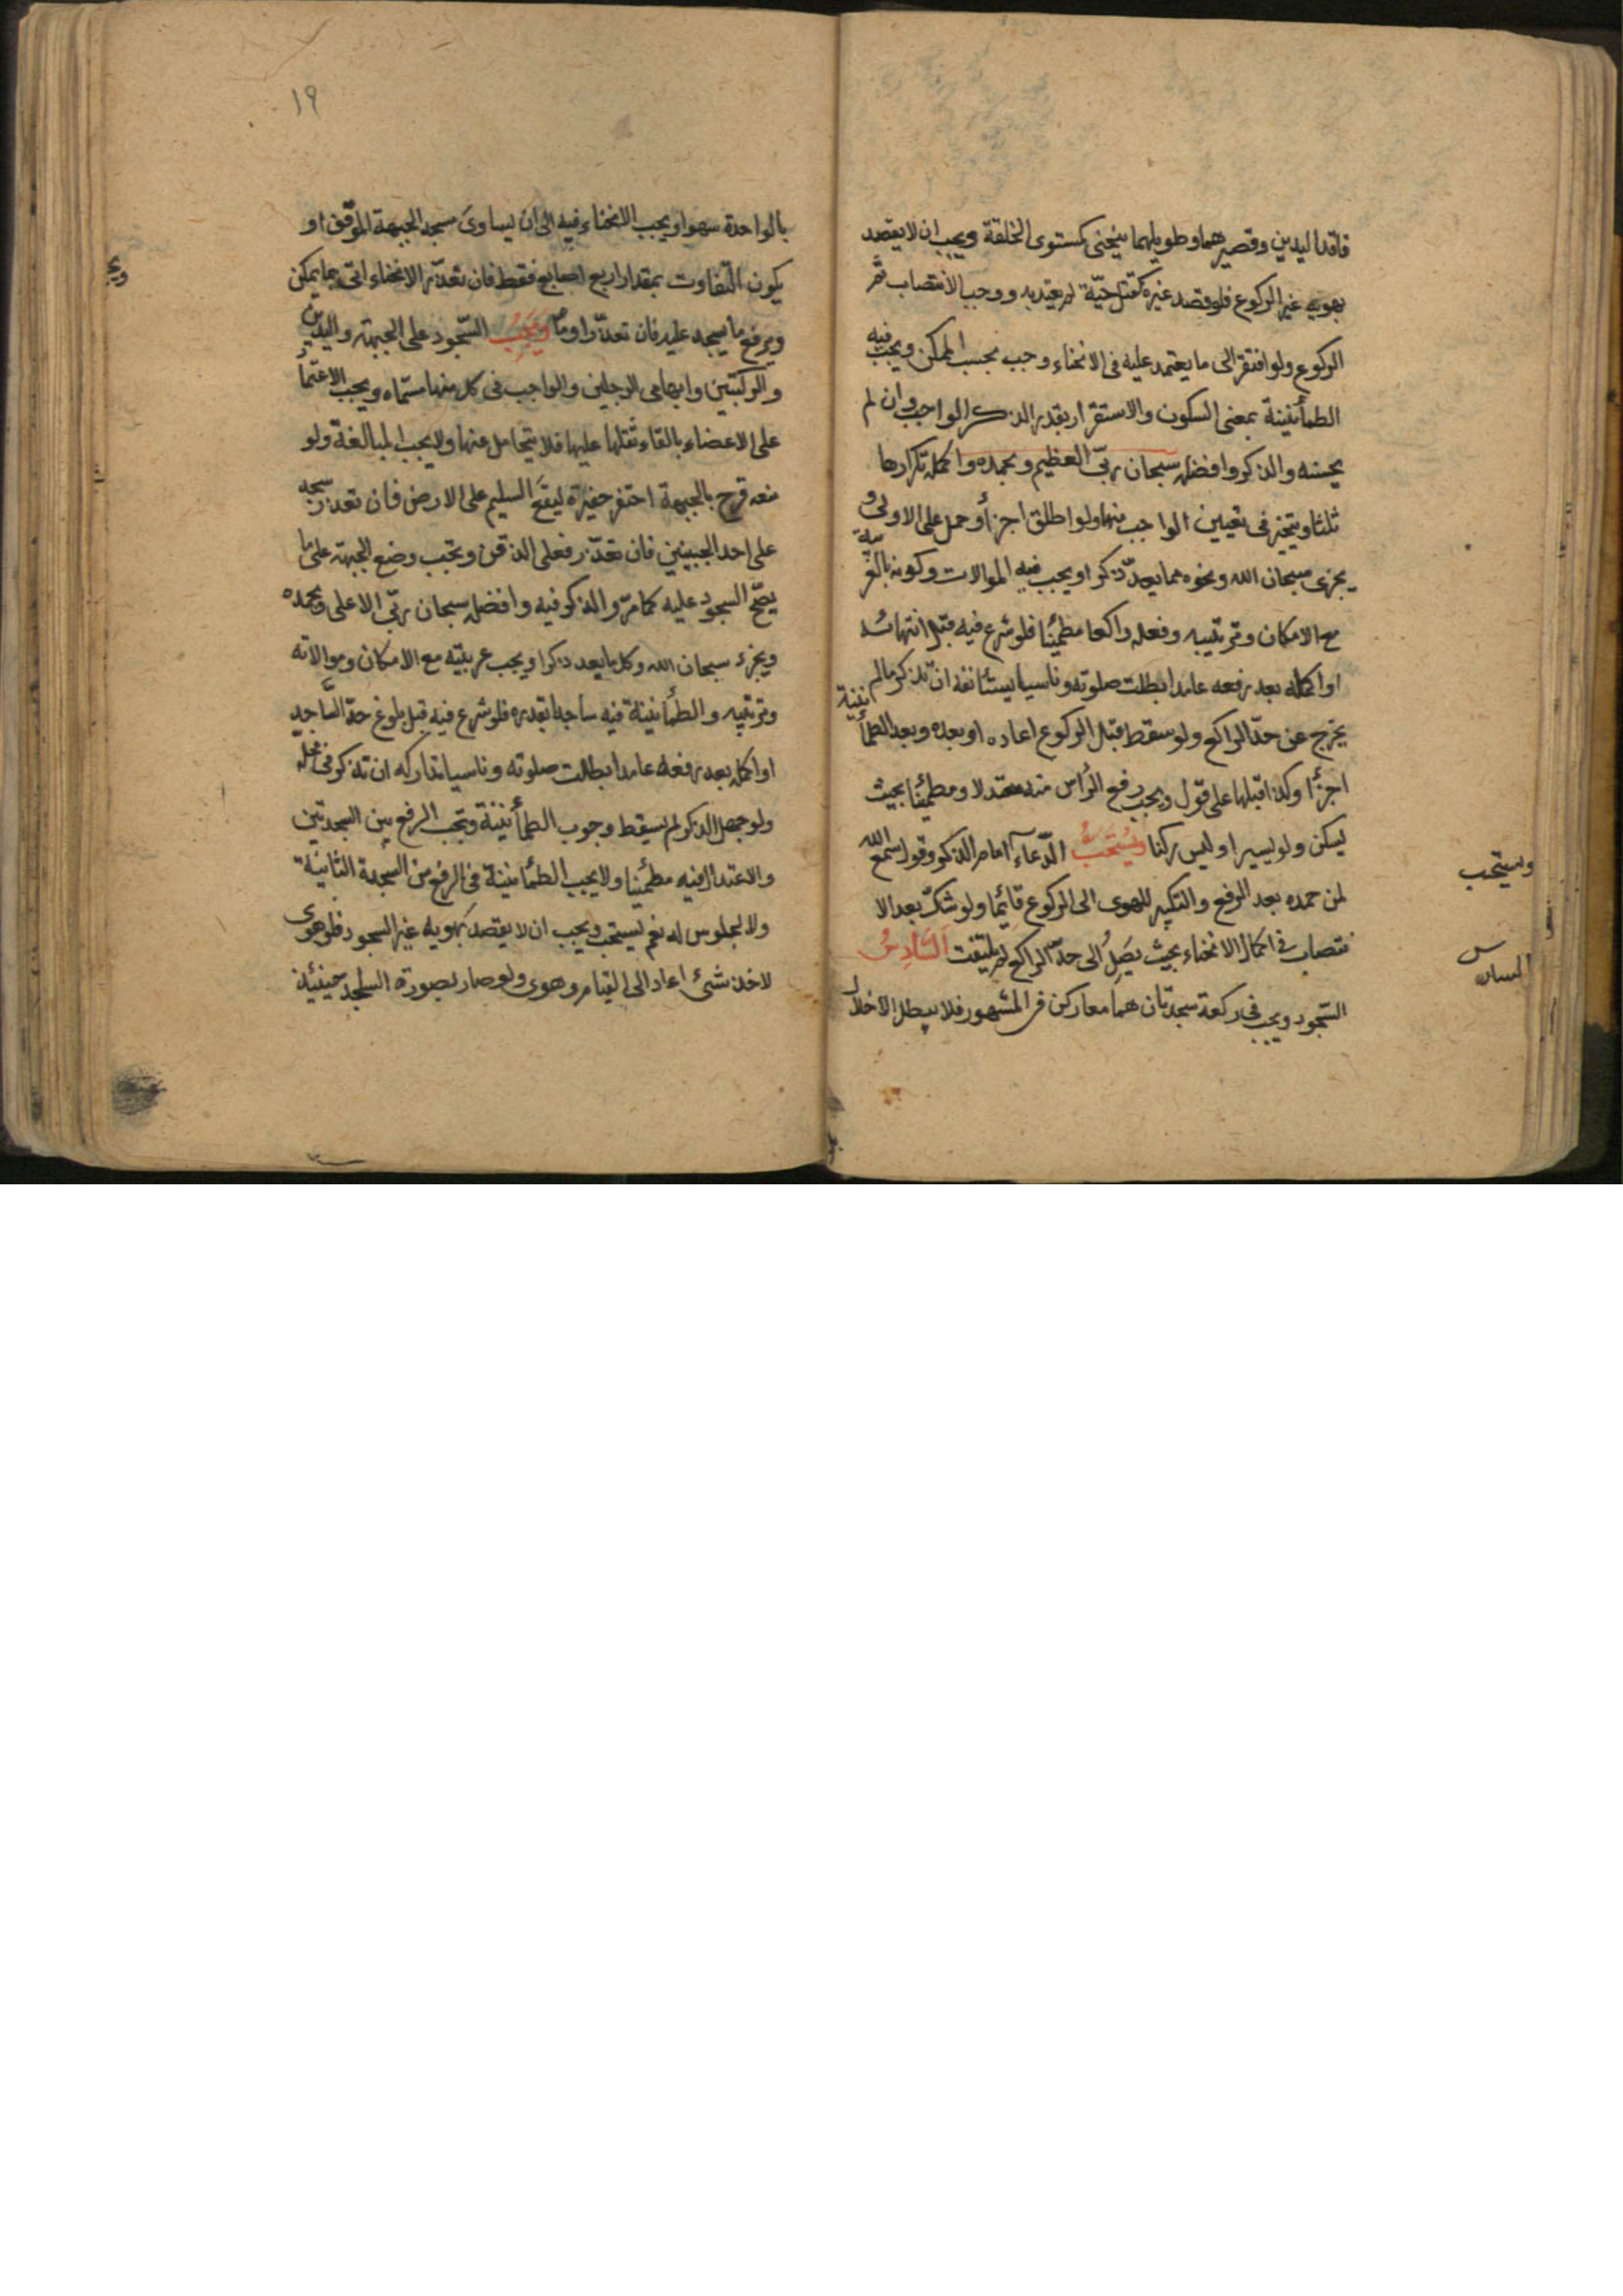 فاقد اليدين وقصيرهما وطويلهما ينحنى كمستوى الخلقة ويجب ان لا يقصد
بهويه غير الركوع فلو قصد غيره كقتل حيّة لم يعتد به ووجب الانتصاب ثم
الركوع ولو افتقر الى ما يعتمد عليه فى الانحناء وجب بحسب الممكن ويجب فيه
الطمأنينة بمعنى السكون والاستقرار بقدر الذكر الواجب وان لم
يحسنه والذكر وافضله سبحان ربّى العظيم وبحمده واكمله تكرارها
ثلثا ويتخير فى تعيين الواجب منها ولو اطلق اجزأ وحمل على الاولى و
يجزى سبحان الله ونحوه مما يعدّ ذكرا ويجب فيه الموالات وكونه بالعربية
مع الامكان وترتيبه وفعله راكعا مطمئنا فلو شرع فيه قبل انتهائه
او اكمله بعد رفعه عامدا بطلت صلوته وناسيا يستأنفه ان تذكر ما لم
يخرج عن حدّ الراكع ولو سقط قبل الركوع اعاده او بعده وبعد الطمأنينة
اجزأ وكذا قبلها على قول ويجب رفع الرأس منه معتدلا ومطمئنا بحيث
يسكن ولو يسيرا وليس ركنا ويُستحَبُّ الدّعاء امام الذكر وقول سمع الله
لمن حمده بعد الرفع والتكبير للهوى الى الركوع قائما ولو شكّ بعد الا
نتصاب فى اكمال الانحناء بحيث يَصِلُ الى حدّ الراكع لم يلتفت السَّادِسُ
السّجود ويجب فى ركعة سجدتان هما معا ركن فى المشهور فلا يبطل الاخلال
ويستحب
السادس
١٩
بالواحدة سهوا ويجب الانحناء فيه الى ان يساوى مسجد الجبهة الموقف او
يكون التفاوت بمقدار اربع اصابع فقط فان تعذّر الانحناء اتى بما يمكن
ويرفع ما يسجد عليه فان تعذّر اومأ وَيَجِبُ السّجود على الجبهة واليدين
والركبتين وابهامى الرجلين والواجب فى كل منها مسمّاه ويجب الاعتماد
على الاعضاء بالقاء ثقلها عليها فلا يتحامل عنها ولا يجب المبالغة ولو
منعه قرح بالجبهة احتفر حفيرة ليقع السليم على الارض فان تعذر سجد
على احد الجبينين فان تعذّر فعلى الذقن ويجب وضع الجبهة على ما
يصّح السجود عليه كما مرّ والذكر فيه وافضله سبحان ربّى الاعلى وبحمده
ويجزء سبحان الله وكل ما يعد ذكرا ويجب عربيته مع الامكان وموالاته
وترتيبه والطمأنينة فيه ساجدا بقدره فلو شرع فيه قبل بلوغ حدّ السّاجد
او اكمله بعد رفعه عامدا بطلت صلوته وناسيا تداركه ان تذكر فى محله
ولو جهل الذكر لم يسقط وجوب الطمأنينة ويجب الرفع بين السجدتين
والاعتدال فيه مطمئنا ولا يجب الطمأنينة فى الرفع من السجدة الثانية
ولا الجلوس له نعم يستحب ويجب ان لا يقصد بهويه غير السجود فلو هوى
لاخذ شئ اعاد الى القيام وهوى ولو صار بصورة الساجد حينئذ